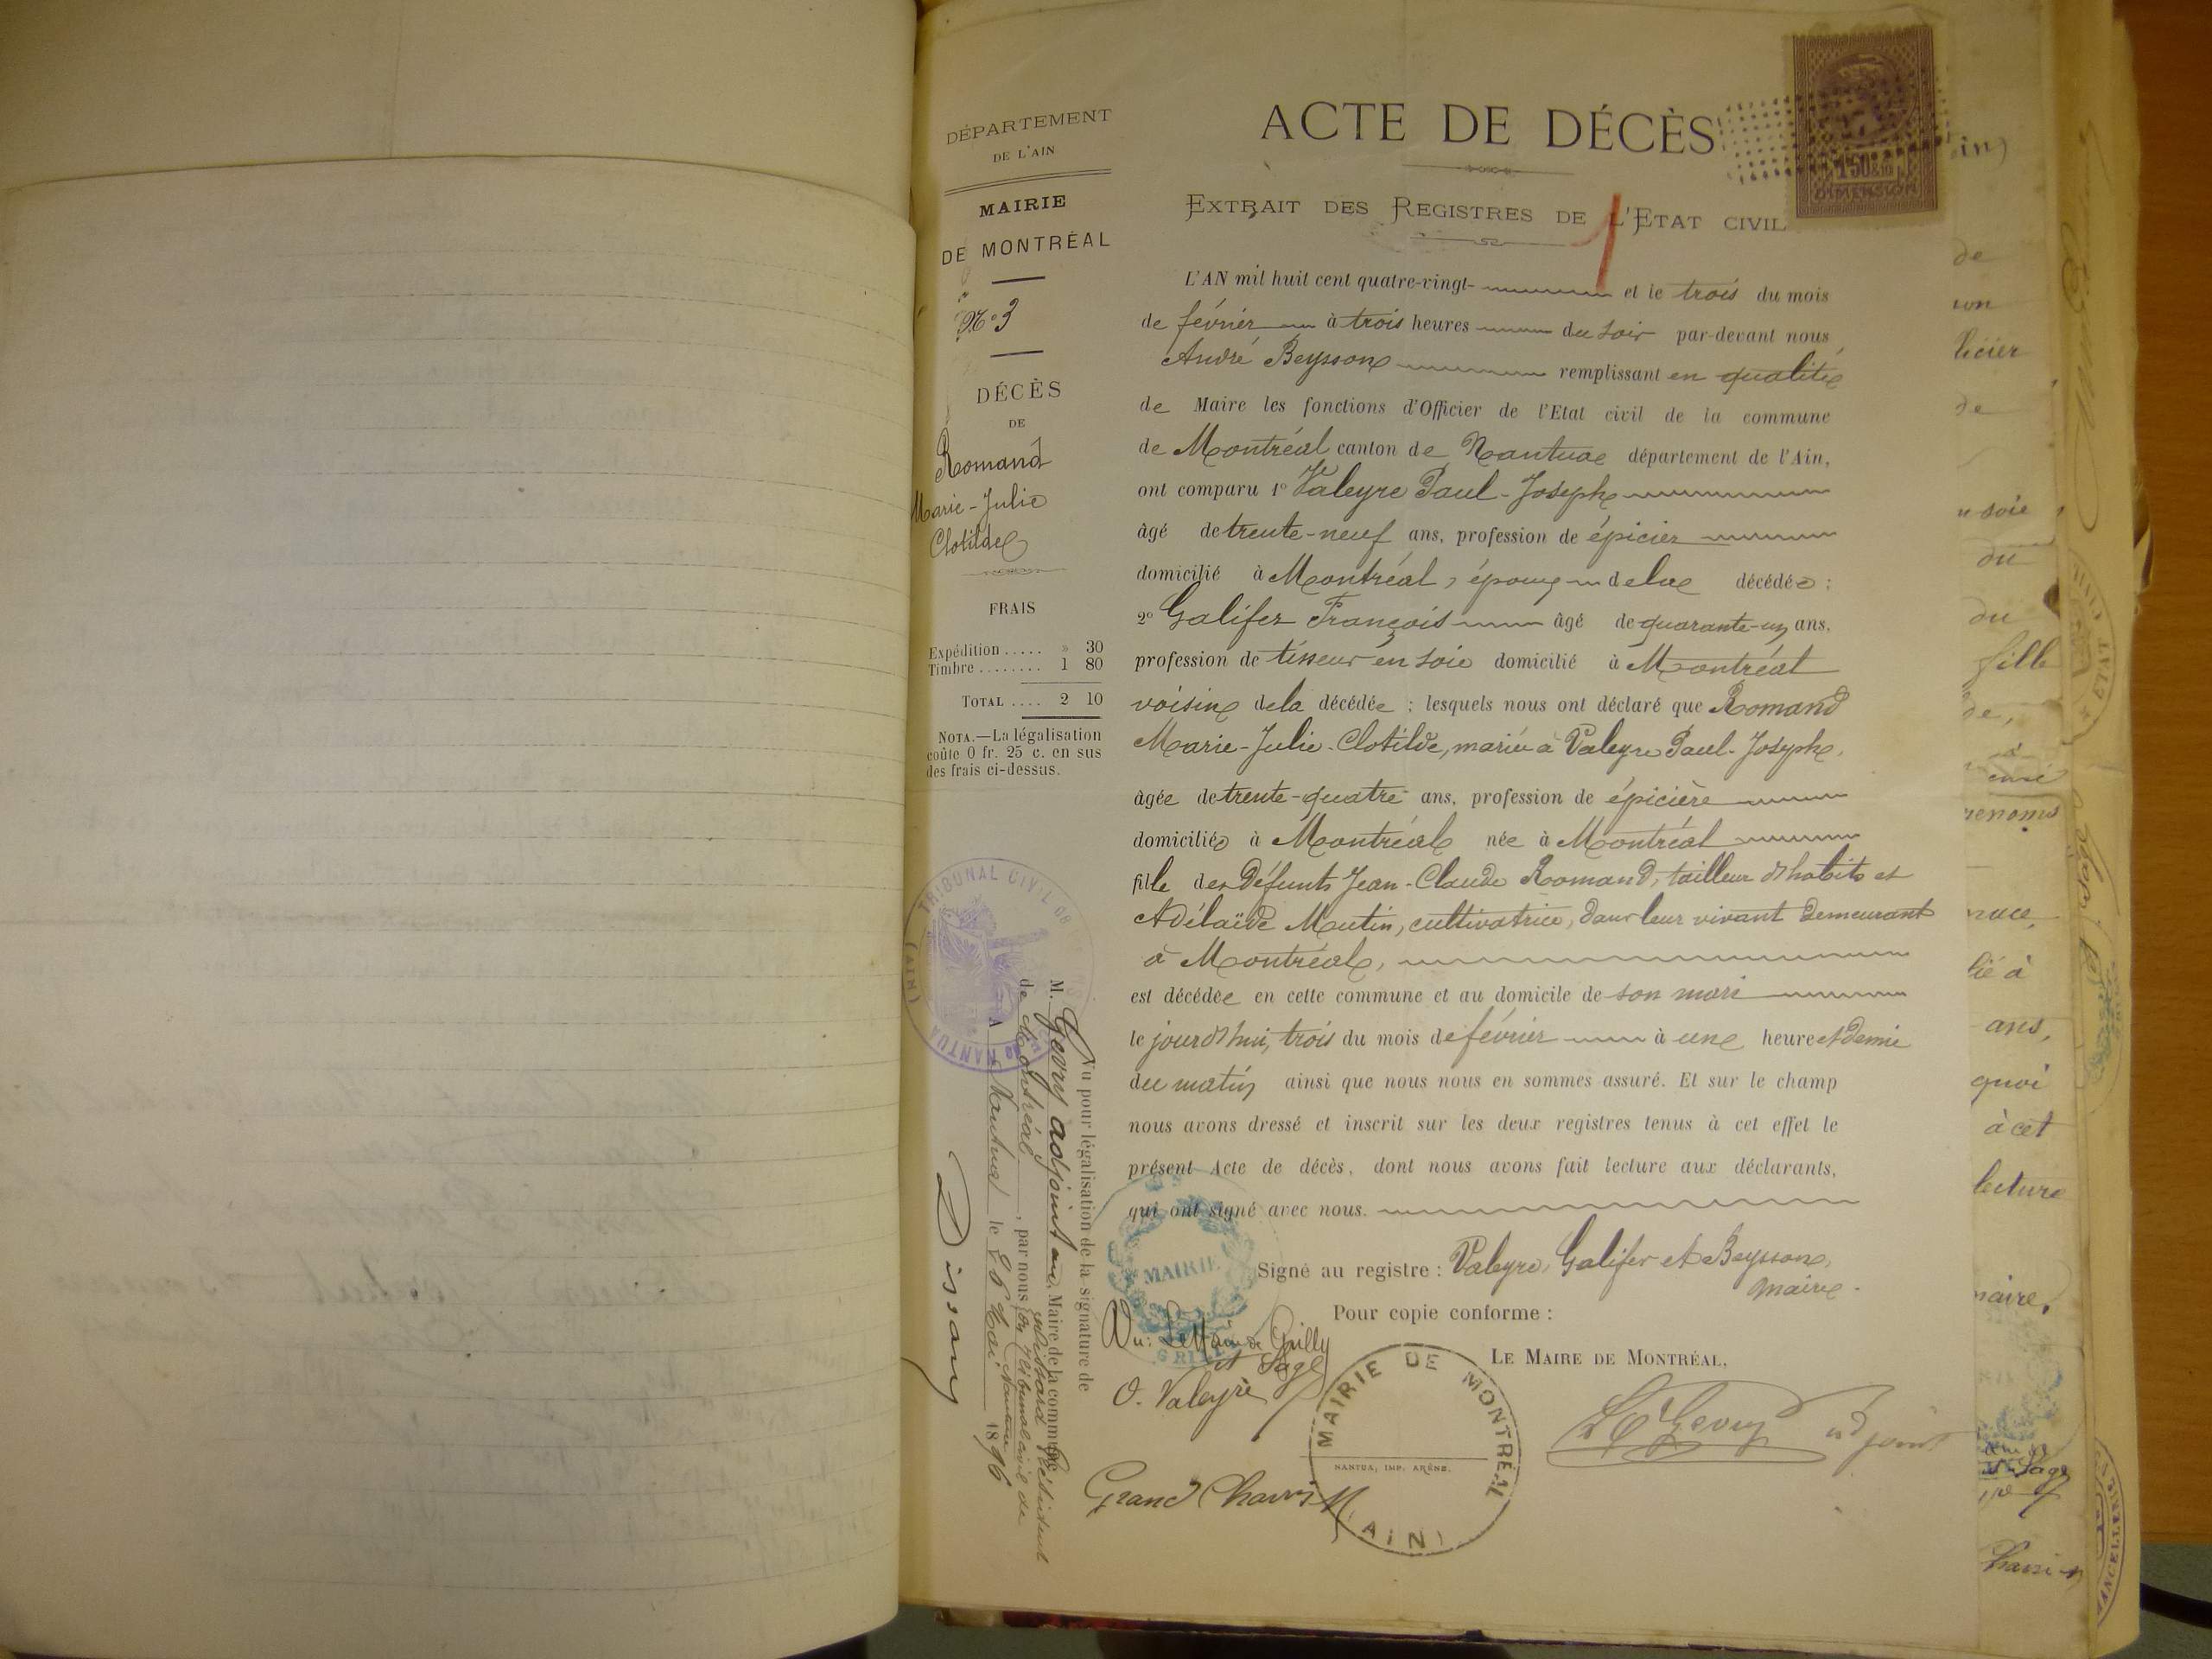 DÉPARTEMENT
DE L'AIN
MAIRIE
DE MONTRÉAL
N° 3
DÉCÈS
DE
Romand
Marie-Julie
Clotilde
FRAIS
Expédition ..... » 30
Timbre ........ 1 80
TOTAL .... 2 10
NOTA.—La légalisation
coûte 0 fr. 25 c. en sus
des frais ci-dessus.
TRIBUNAL CIVIL DE NANTUA (AIN)
Vu pour légalisation de la signature de
M. Gevry adjoint au Maire de la commune
de Montréal, par nous
A Nantua le 26 Mai 1896
ACTE DE DÉCÈS
1 50
DIMENSION
EXTRAIT DES REGISTRES DE L'ETAT CIVIL
L'AN mil huit cent quatre-vingt- et le trois du mois
de février à trois heures du soir par-devant nous
André Beysson remplissant en qualité
de Maire les fonctions d'Officier de l'Etat civil de la commune
de Montréal canton de Nantua département de l'Ain,
ont comparu 1° Valeyre Paul-Joseph
âgé de trente-neuf ans, profession de épicier
domicilié à Montréal, époux de la décédée ;
2° Galifer François âgé de quarante-un ans,
profession de tisseur en soie domicilié à Montréal
voisin de la décédée ; lesquels nous ont déclaré que Romand
Marie-Julie-Clotilde, mariée à Valeyre Paul-Joseph,
âgée de trente-quatre ans, profession de épicière
domiciliée à Montréal née à Montréal
fille des défunts Jean-Claude Romand, tailleur d'habits et
Adélaïde Mutin, cultivatrice, dans leur vivant demeurant
à Montréal,
est décédée en cette commune et au domicile de son mari
le jourd'hui, trois du mois de février à une heure et demie
du matin ainsi que nous nous en sommes assuré. Et sur le champ
nous avons dressé et inscrit sur les deux registres tenus à cet effet le
présent Acte de décès, dont nous avons fait lecture aux déclarants,
qui ont signé avec nous.
Signé au registre : Valeyre, Galifer et Beysson,
maire.
MAIRIE
Pour copie conforme :
Vu: Le Maire de Grilly
et Sage
O. Valeyre
LE MAIRE DE MONTRÉAL,
Gevry adjoint
MAIRIE DE MONTRÉAL (AIN)
NANTUA, IMP. ARÈNE.
in)
de
licier
de
n soie
du
du
fille
renoms
lié à
ans,
quoi
à cet
lecture
naire,